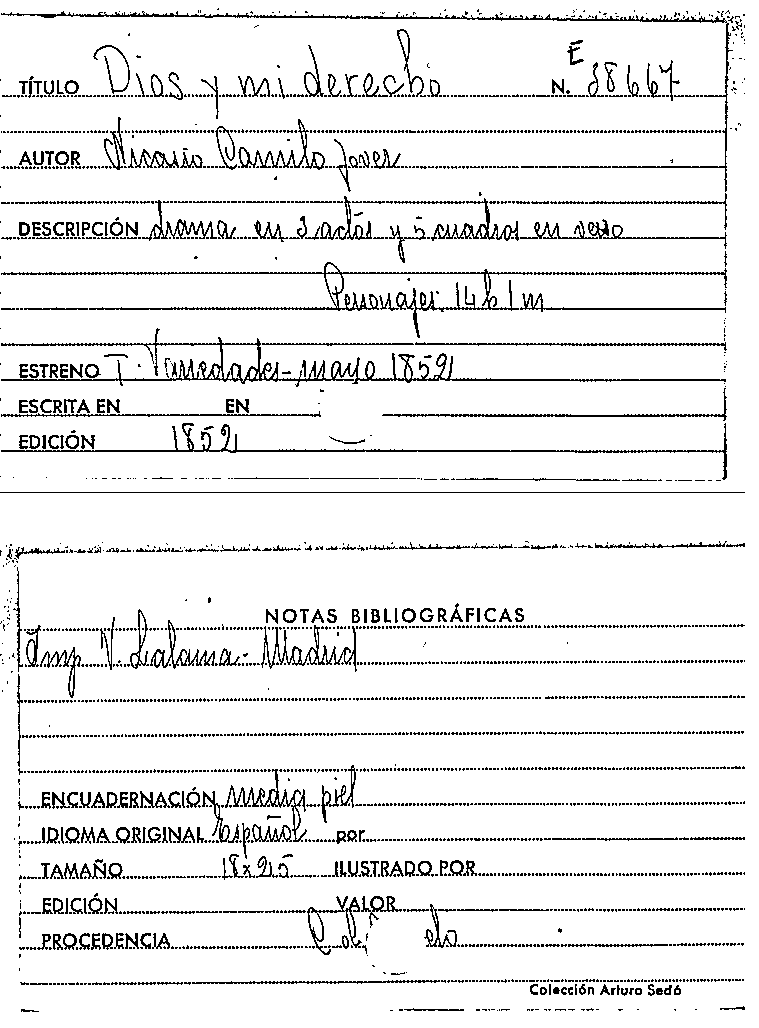 TÍTULO Dios y mi derecho N. E 38667
AUTOR Nicasio Camilo Jover
DESCRIPCIÓN drama en 3 actos y 5 cuadros en verso
Personajes 14 h 1 m
ESTRENO T. Variedades - mayo 1852
ESCRITA EN EN
EDICIÓN 1852
NOTAS BIBLIOGRÁFICAS
Imp V. Lalama - Madrid
ENCUADERNACIÓN media piel
IDIOMA ORIGINAL Español por
TAMAÑO 18x25 ILUSTRADO POR
EDICIÓN VALOR
PROCEDENCIA
Colección Arturo Sedó